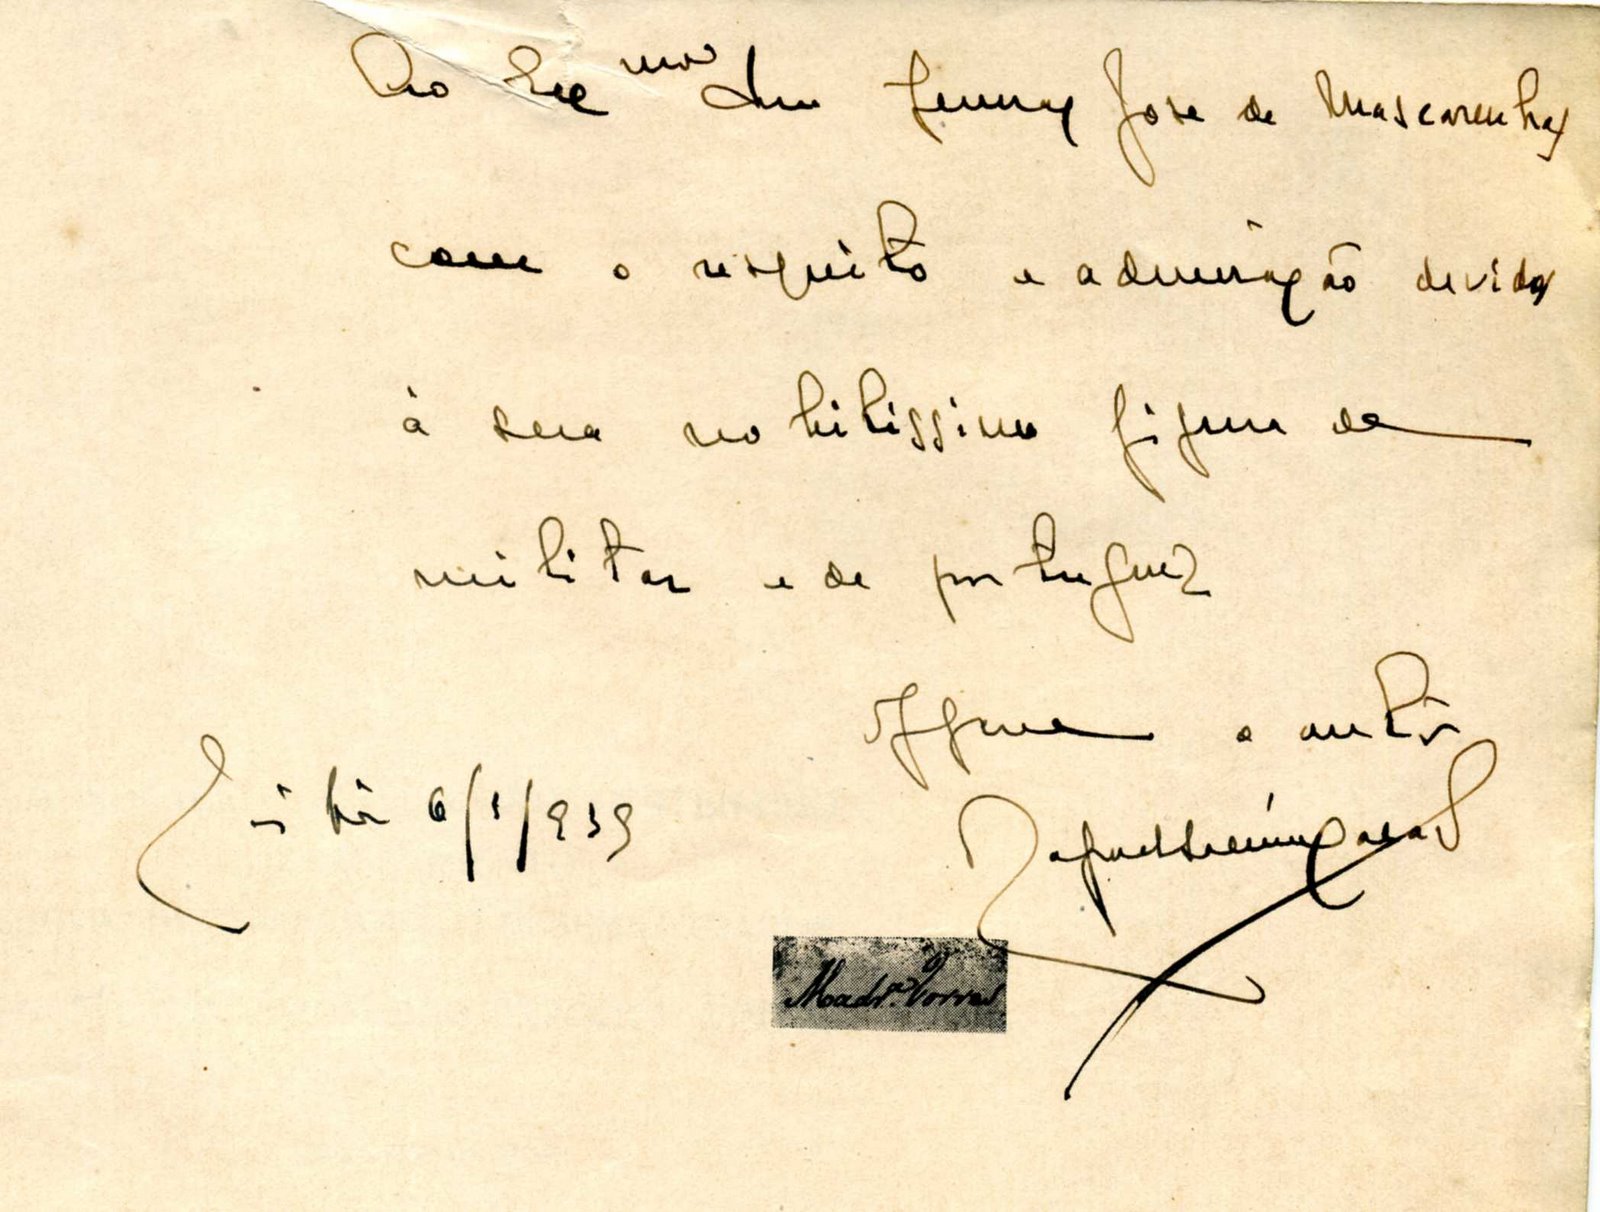 Ao Exc mo Snr José de Mascarenhas
com o respeito e admiração devidos
à sua nobilissima figura de
militar e de portuguez
offerece o autôr
Lisbôa 6/1/939
Madr.ª Torres